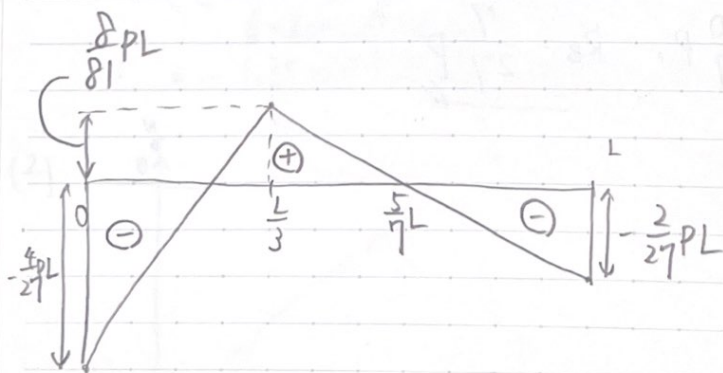 8/81 PL
L
0
L/3
5/7 L
⊕
⊖
⊖
-4/27 PL
-2/27 PL